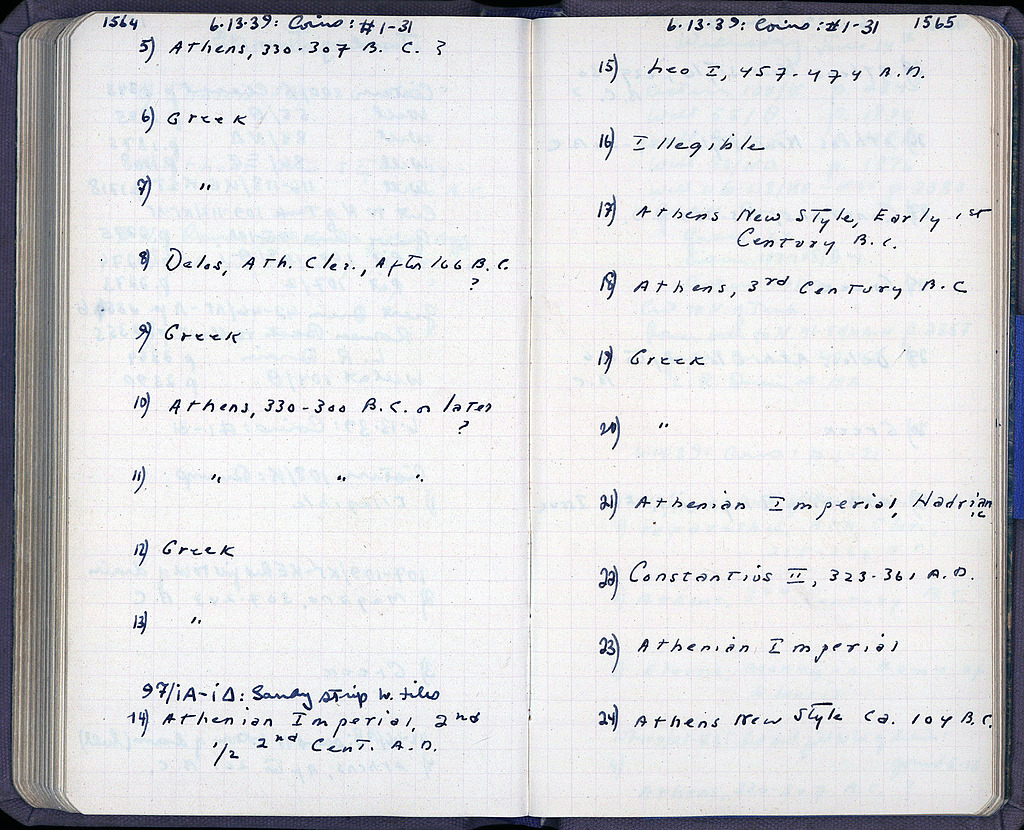 1564 6.13.39: Coins: #1-31
5) Athens, 330-307 B.C. ?
6) Greek
7) "
8) Delos, Ath. Cler., After 166 B.C.
?
9) Greek
10) Athens, 330-300 B.C. or later
?
11) " " "
12) Greek
13) "
97/ΙΑ-ΙΔ: Sandy strip w. tiles
14) Athenian Imperial, 2nd
1/2 2nd Cent. A.D.
6.13.39: Coins: #1-31 1565
15) Leo I, 457-474 A.D.
16) Illegible
17) Athens New Style, Early 1st
Century B.C.
18) Athens, 3rd Century B.C
19) Greek
20) "
21) Athenian Imperial, Hadrian
ic
22) Constantius II, 323-361 A.D.
23) Athenian Imperial
24) Athens New Style Ca. 104 B.C.